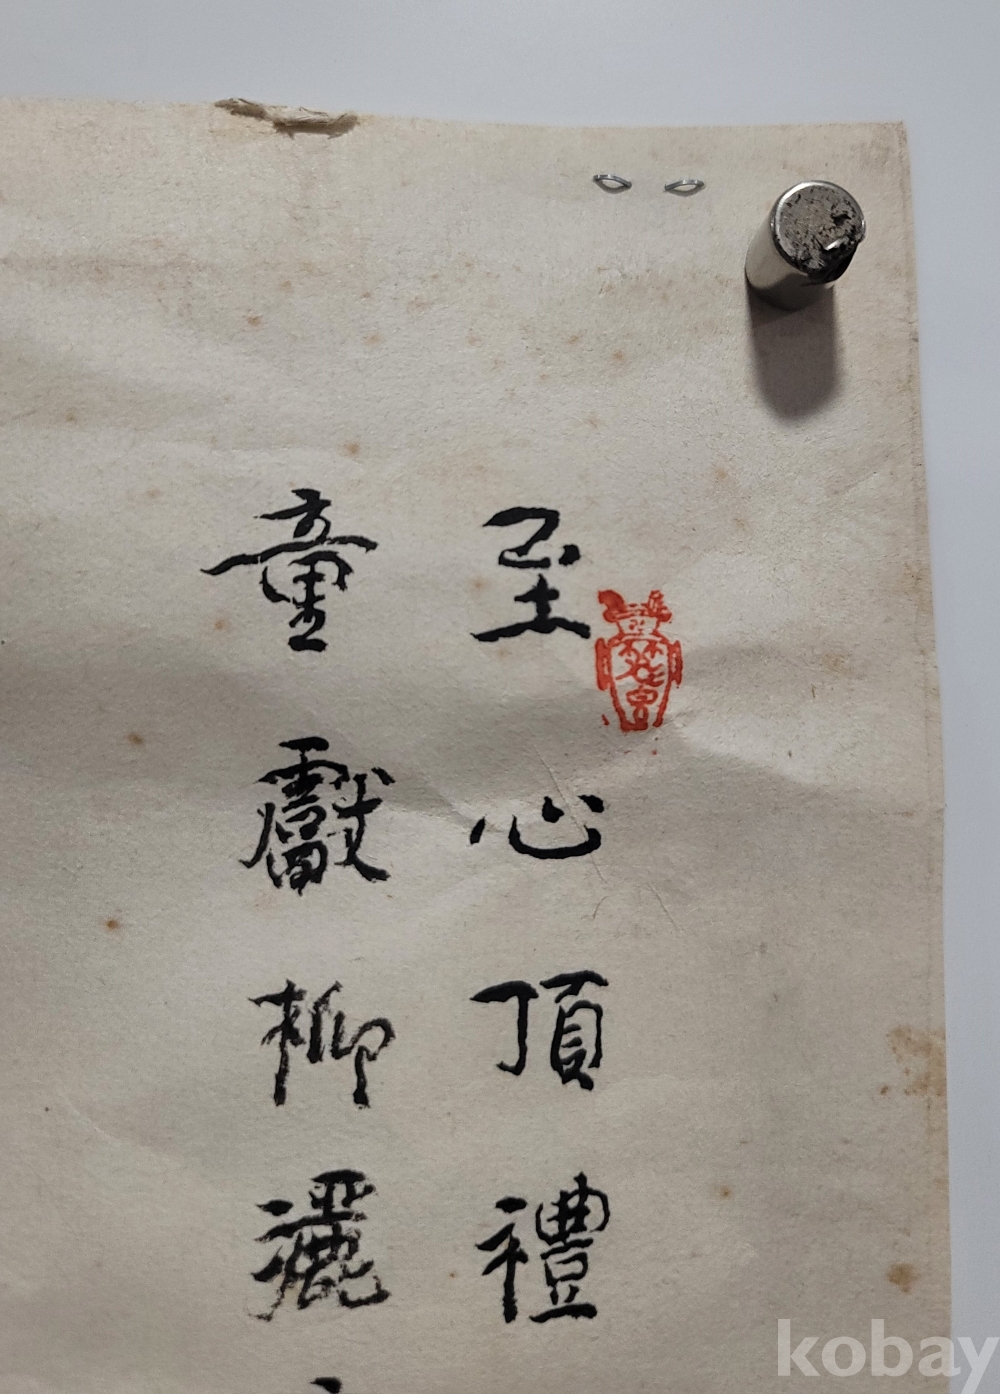 至心頂禮
童獻柳灑
kobay